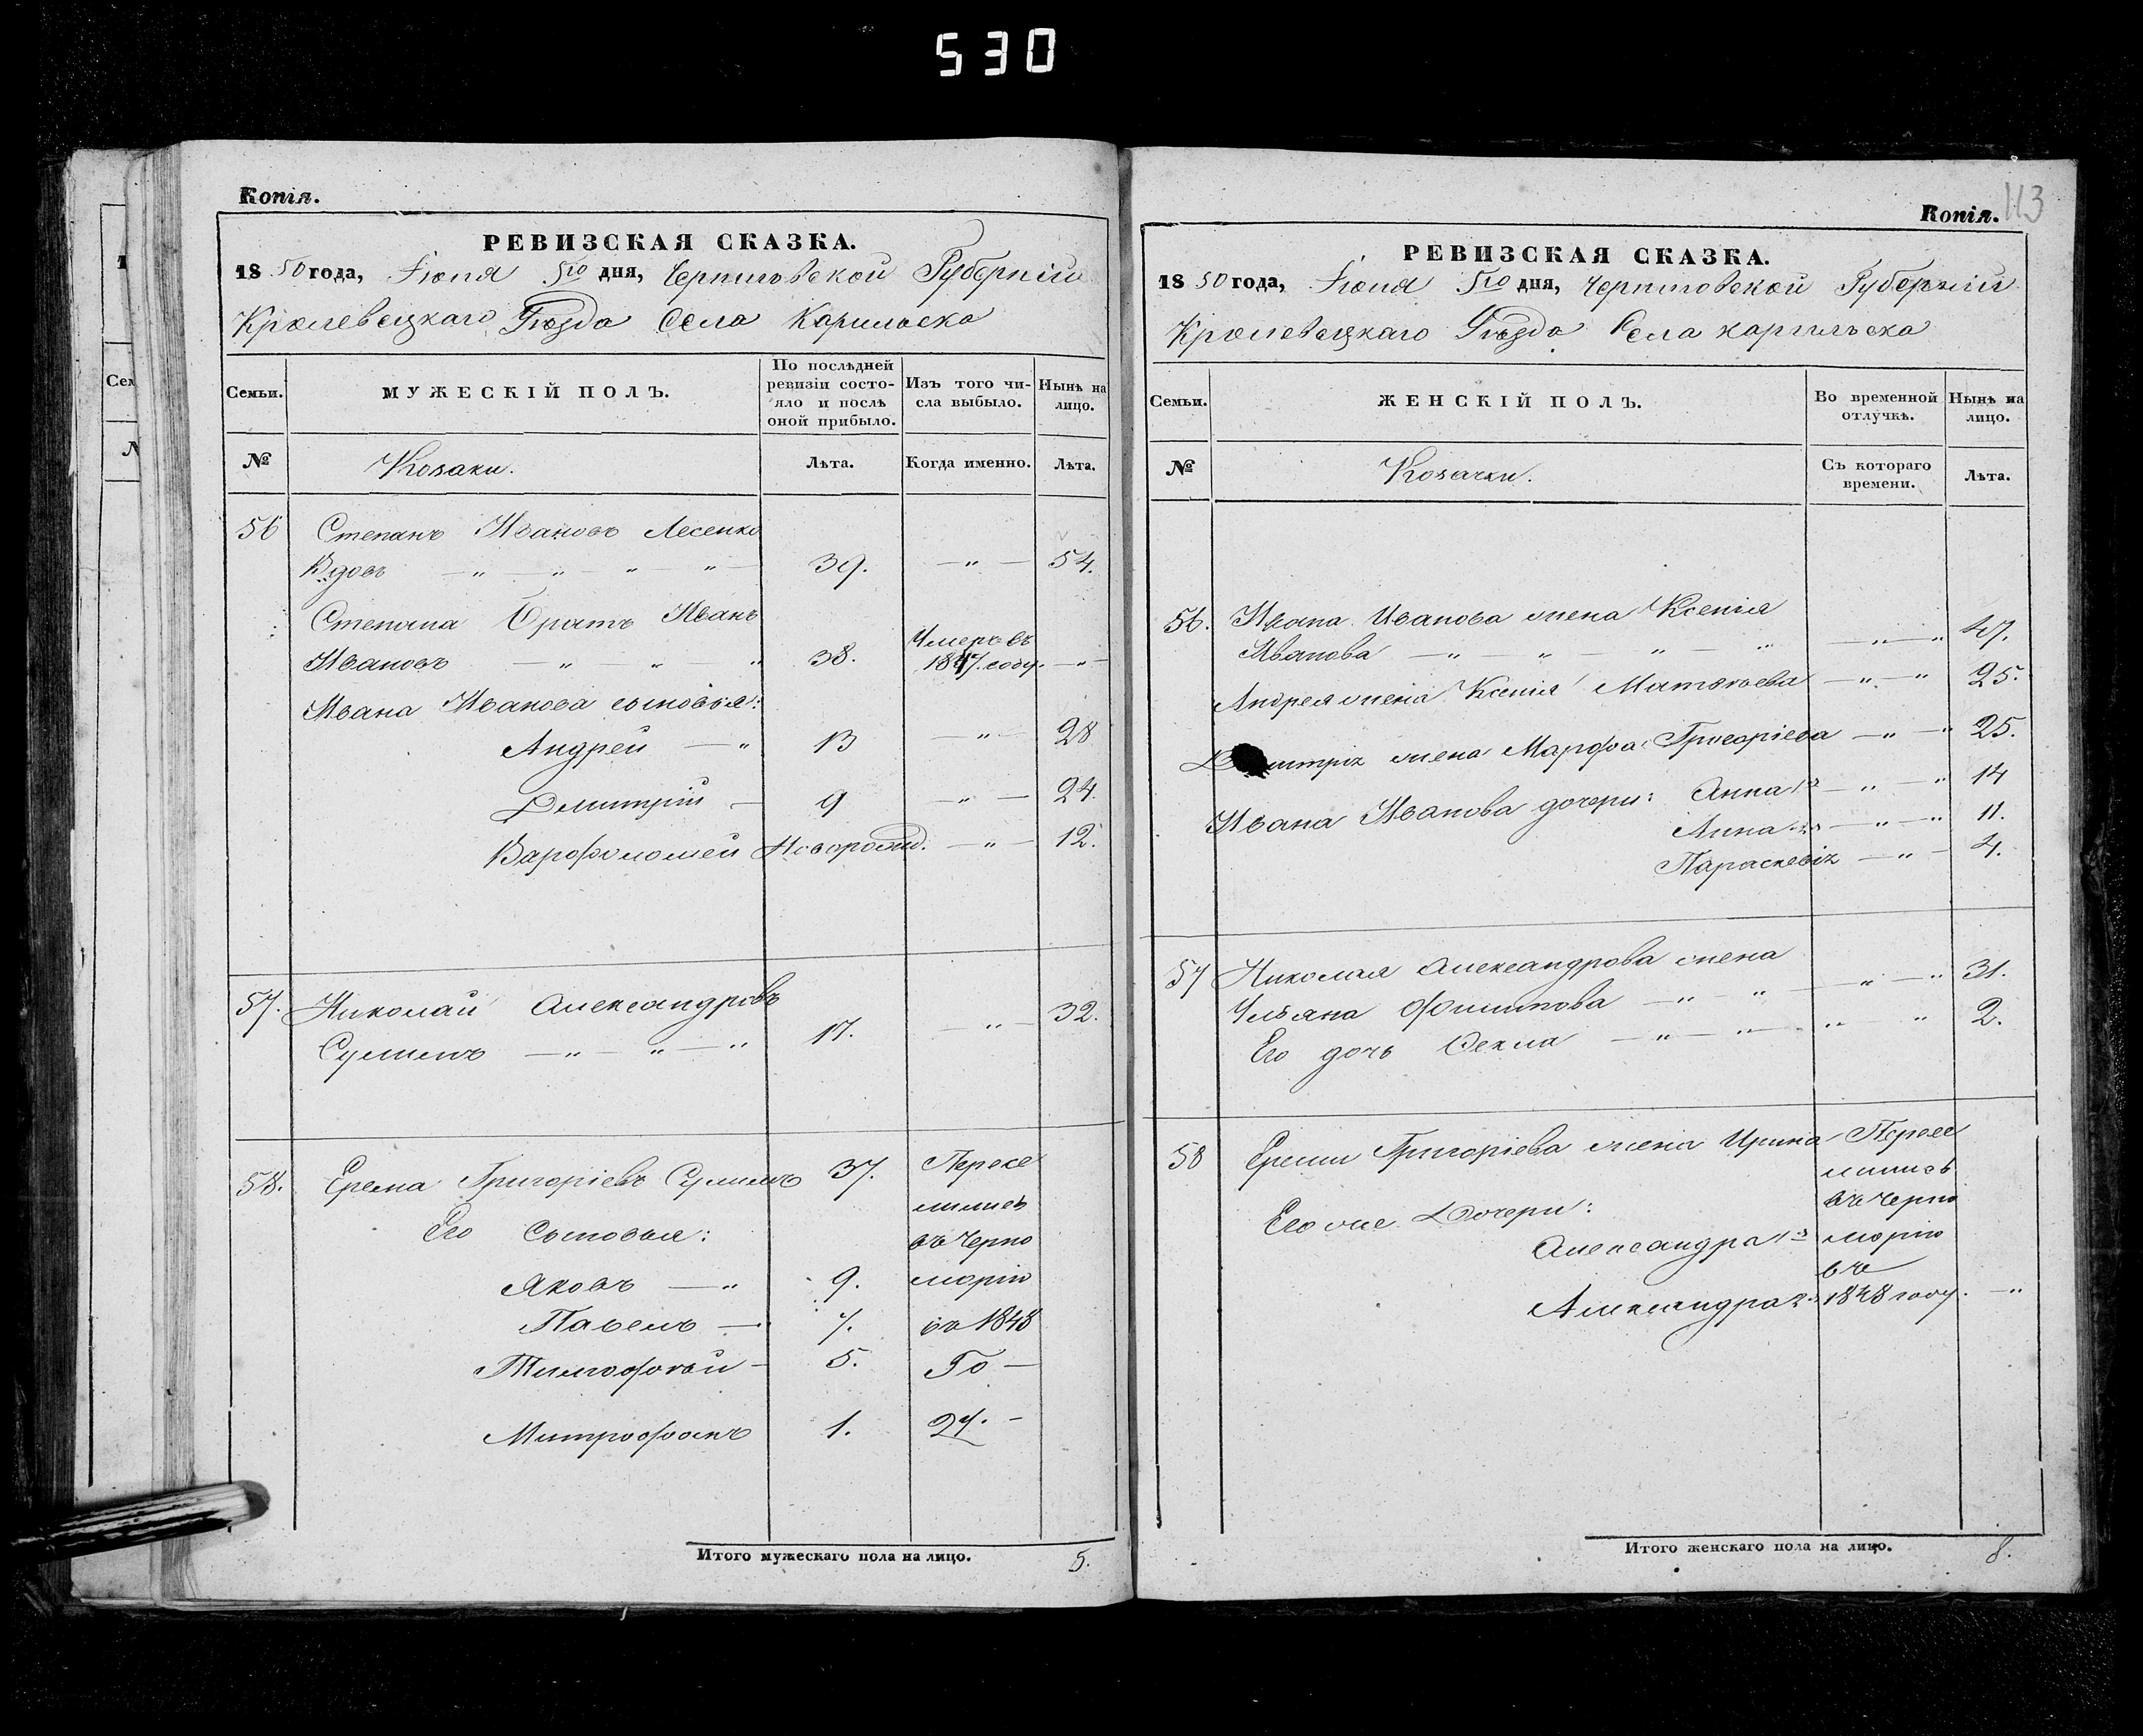 530
Копія.
РЕВИЗСКАЯ СКАЗКА.
1850 года, Іюня 5го дня, Черниговской Губерніи
Кролевецкаго Уѣзда Села Карильска
Семьи.
МУЖЕСКІЙ ПОЛЪ.
По послѣдней
ревизіи состо-
яло и послѣ
оной прибыло.
Изъ того чи-
сла выбыло.
Нынѣ на
лицо.
№
Козаки.
Лѣта.
Когда именно.
Лѣта.
56 Степанъ Ивановъ Лесенко
Вдовъ — „ — „ „ „ — 39. — „ — 54.
Степана Братъ Иванъ
Умеръ въ
Ивановъ — „ „ „ 38. 1847. году. — „ —
Ивана Иванова сыновья:
Андрей — „ 13 — „ — 28
Дмитрій — 9 — „ — 24.
Варфоломей Новорожд. — „ — 12.
57. Николай Александровъ
Сулимъ — „ — „ — „ 17. — „ — 32.
58. Ерема Григоріевъ Сулимъ 37. Пересе
лились
Его Сыновья: въ Черно
Яковъ — „ 9. морію
Павелъ — 7. въ 1848
Тимофѣй — 5. Го —
Митрофанъ 1. ду. –
Итого мужескаго пола на лицо. 5.
113
Копія.
РЕВИЗСКАЯ СКАЗКА.
1850 года, Іюня 5го дня, Черниговской Губерніи
Кролевецкаго Уѣзда Села Карильска
Семьи.
ЖЕНСКІЙ ПОЛЪ.
Во временной
отлучкѣ.
Нынѣ на
лицо.
№
Козачки.
Съ котораго
времени.
Лѣта.
56. Ивана Иванова жена Ксенія
Иванова — „ — „ — „ „ — „ — „ 47.
Андрея жена Ксенія Матвѣева — „ — „ 25.
Дмитрія жена Марфа Григоріева — „ — „ 25.
Ивана Иванова дочери: Анна 1я — „ — „ 14
Анна 2я — „ — „ 11.
Параскевія — „ — 4.
57 Николая Александрова жена
Ульяна Филипова — „ — „ — „ — „ 31.
Его дочь Фекла — „ — „ — „ „ 2.
58 Еремы Григоріева жена Ирина Пересе
лились
Его же Дочери: въ Черно
Александра 1я морію
въ
Александра 2я 1848 году. — „
Итого женскаго пола на лицо. 8.